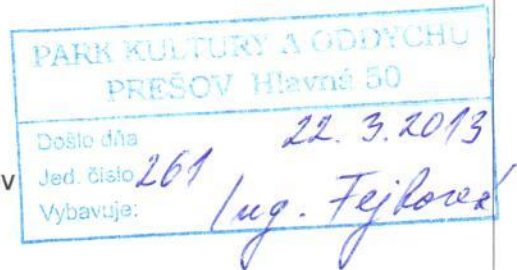 PARK KULTURY A ODDYCHU
PREŠOV Hlavná 50
Došlo dňa 22. 3. 2013
v Jed. číslo 261
Vybavuje: Ing.